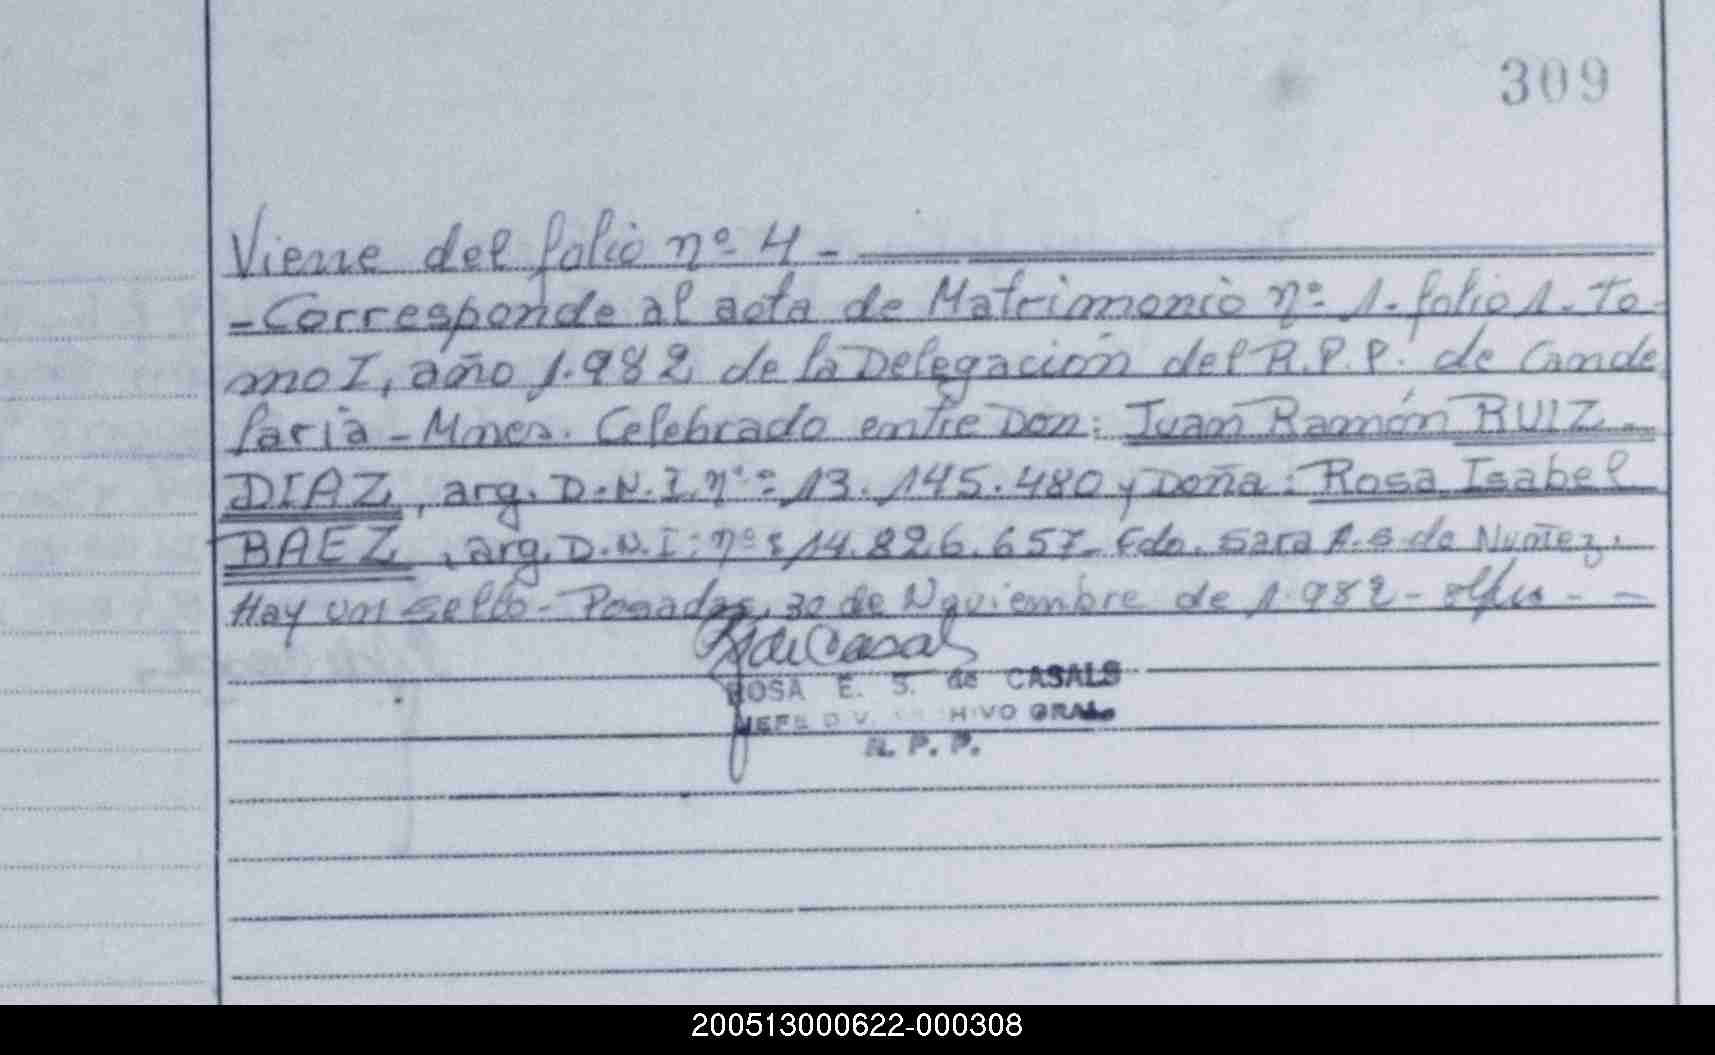 309
Viene del folio nº 4 -
- Corresponde al acta de Matrimonio nº 1. folio 1. To-
mo I, año 1.982 de la Delegación del R.P.P. de Cande
laria - Mnes. Celebrado entre Don: Juan Ramón RUIZ
DIAZ, arg. D.N.I. nº: 13.145.480 y Doña: Rosa Isabel
BAEZ, arg. D.N.I: nº: 14.826.657. Fdo. Sara A.S. de Nuñez.
Hay un sello - Posadas, 30 de Noviembre de 1.982 -
de Casals
ROSA E. S. de CASALS
JEFE DIV. ARCHIVO GRAL.
R. P. P.
200513000622-000308